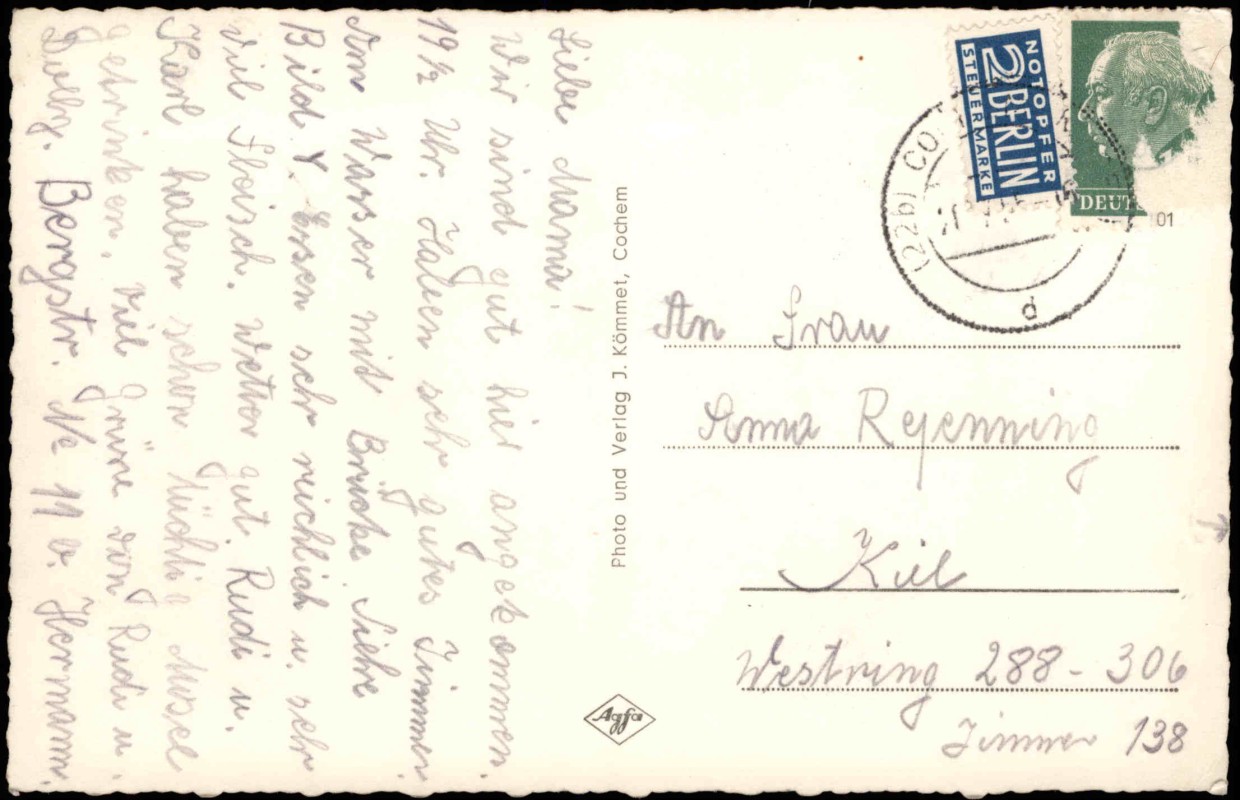 Liebe Mama!
Wir sind gut hier angekommen.
19½ Uhr. Haben sehr gutes Zimmer
Am Wasser mit Brücke. Siehe
Bild. Y. Essen sehr reichlich u. sehr
viel Fleisch. Wetter gut. Rudi u.
Karl haben schon tüchtig Mosel
getrinken. viel Grüße von Rudi u.
Bergstr. № 11 b. Hermann.
Photo und Verlag J. Kömmet, Cochem
Agfa
NOTOPFER
2 BERLIN
STEUERMARKE
DEUT
01
(22b) CO
d
An Frau
Anna Regenning
Kiel
Westring 288-306
Zimmer 138